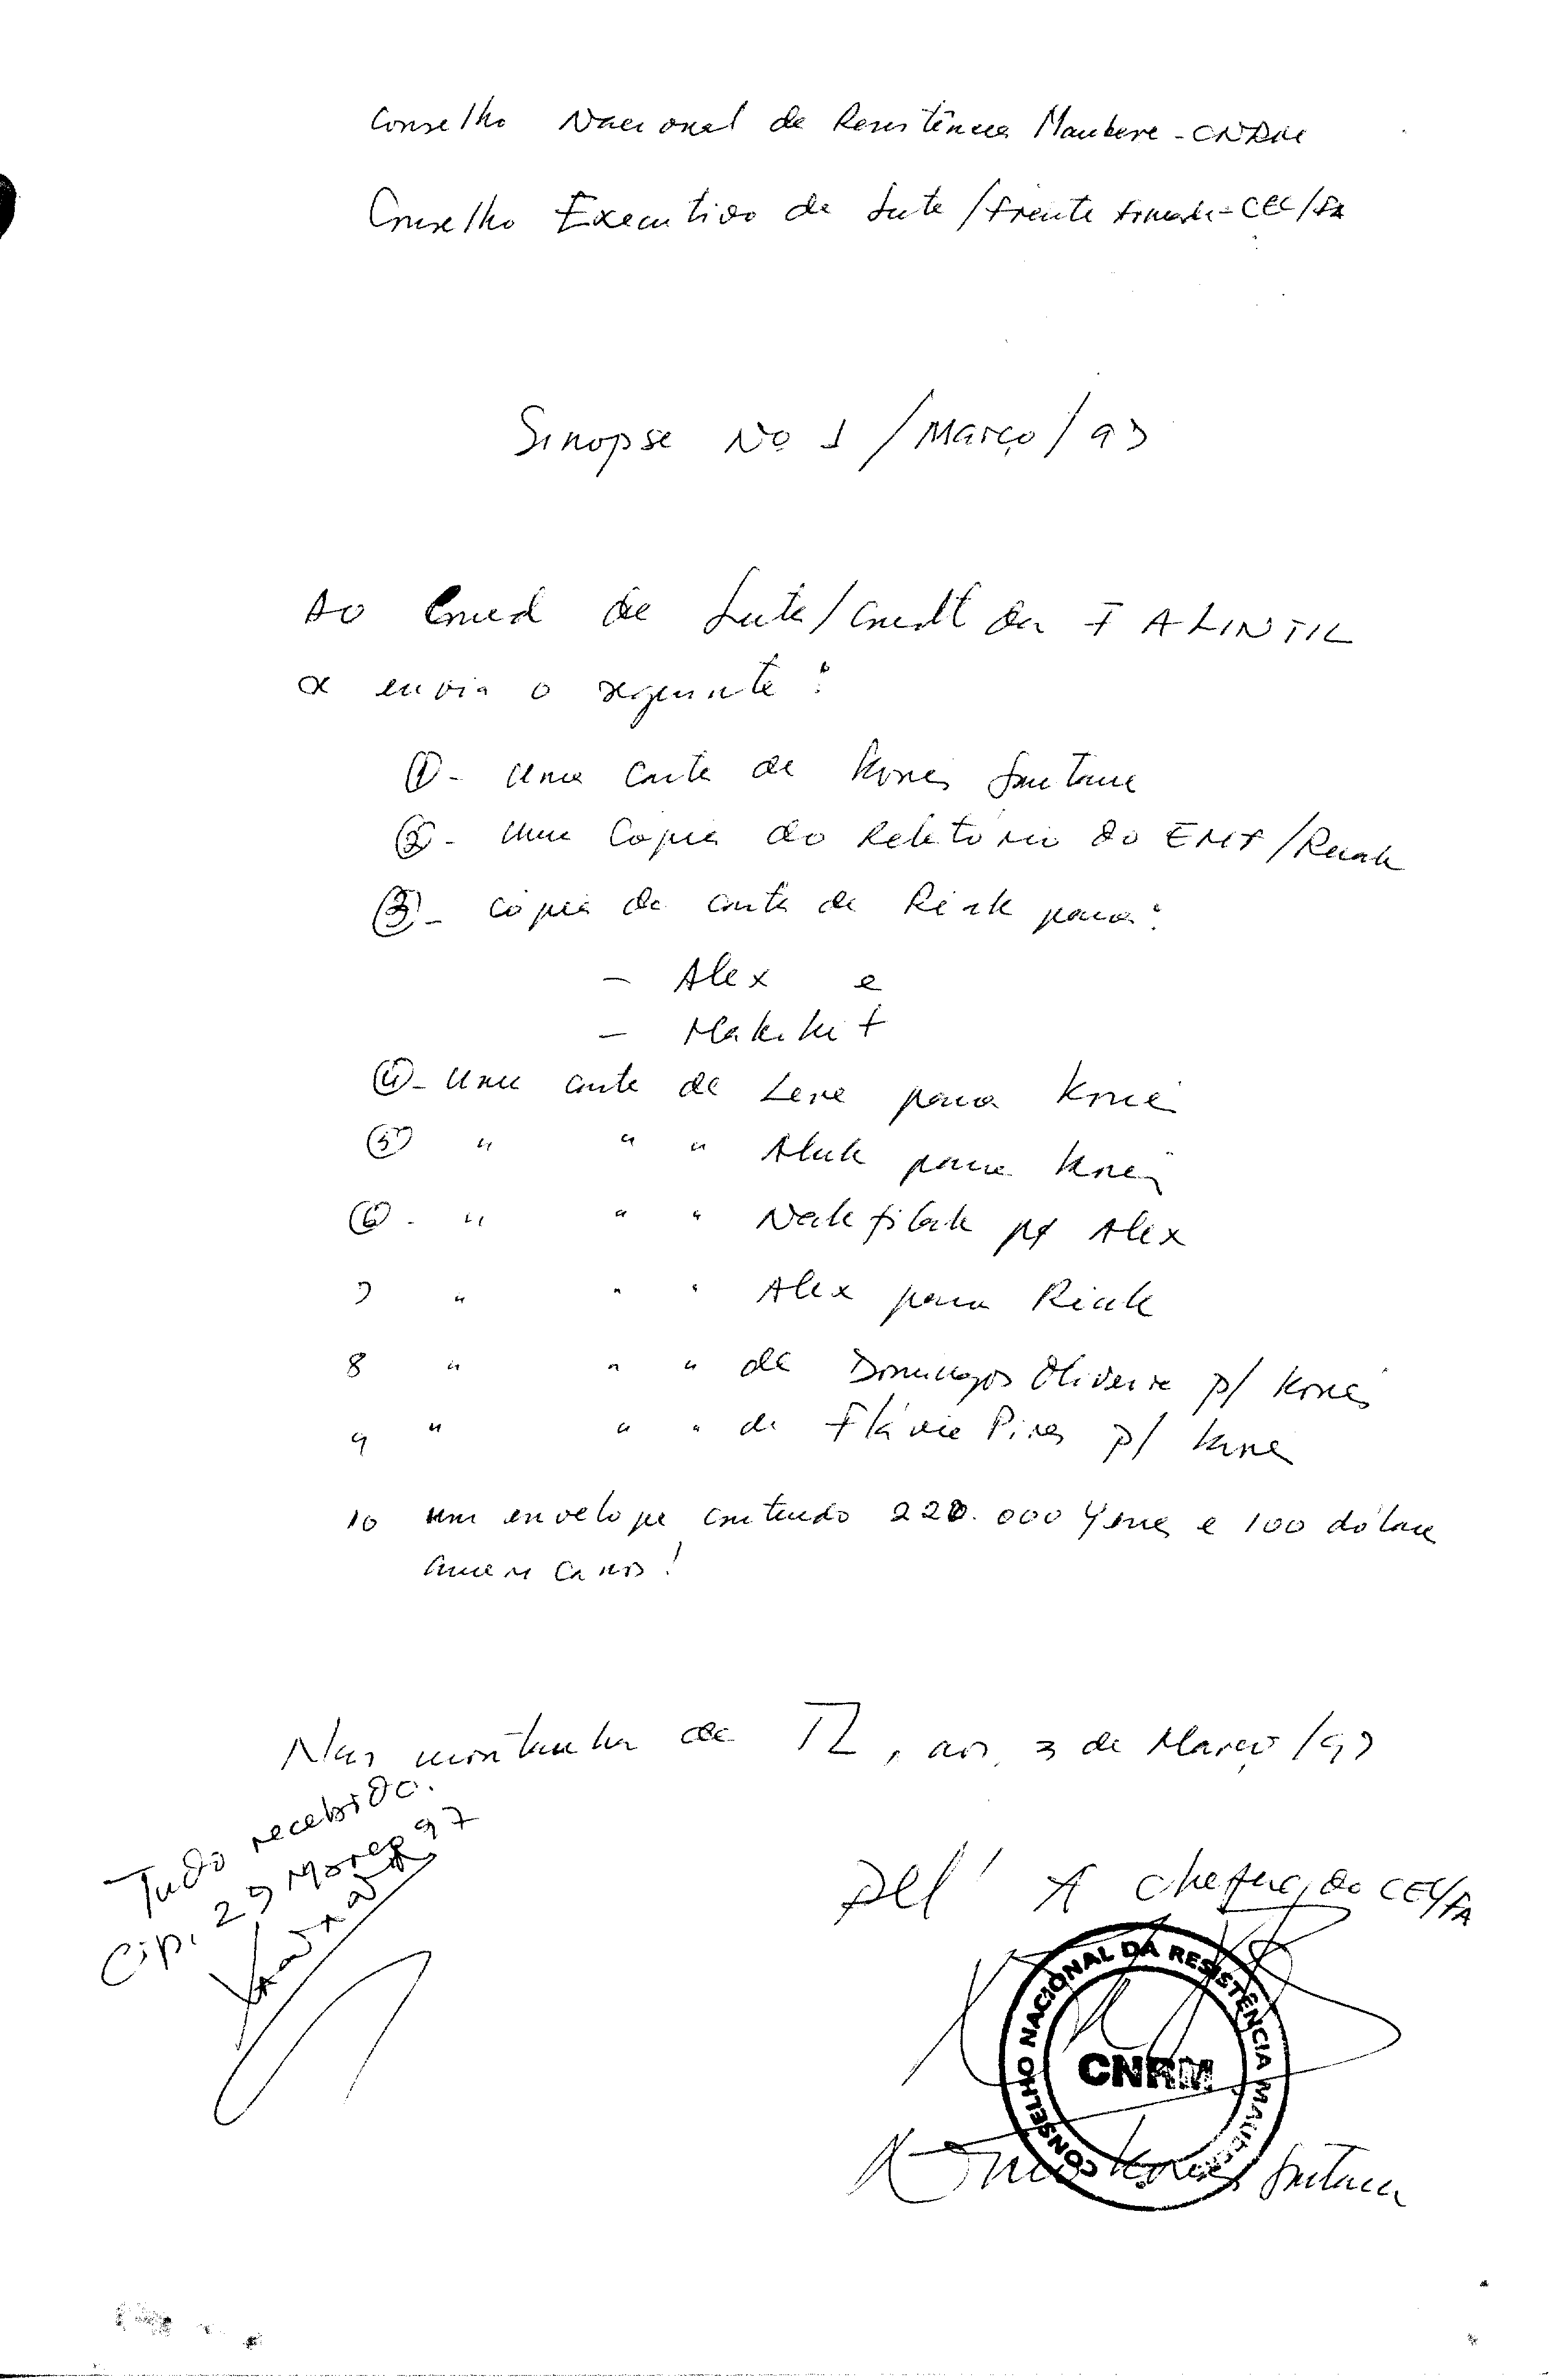 Conselho Nacional de Resistência Maubere - CNRM
Conselho Executivo de Luta / Frente Armada - CEL/FA
Sinopse No 1 / Março / 97
Ao Cmd de Luta / Cmdt da FALINTIL
se envia o seguinte:
① - Uma carta de Konis Santana
② - Uma Cópia do Relatório do EMF / Ruak
③ - cópia da carta de Riak para:
- Alex e
- Makikit
④ - Uma carta de Lere para Konis
⑤ " " " Aluk para Konis
⑥ - " " " Nakfilak p/ Alex
7 " " " Alex para Riak
8 " " " de Domingos Oliveira p/ Konis
9 " " " de Flávio Pires p/ Konis
10 um envelope contendo 220.000 Yenes e 100 dólares
americanos!
Nas montanhas de TL, aos 3 de Março / 97
Tudo recebido.
Cip. 29 Março 97
Pel' A Chefia do CEL/FA
CONSELHO NACIONAL DA RESISTÊNCIA MAUBERE
CNRM
Konis Santana